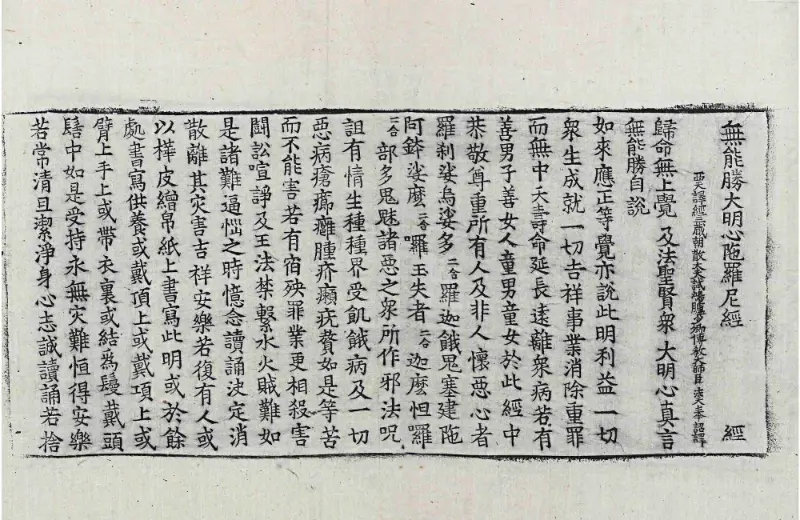 無能勝大明心陁羅尼經 經
西天譯經三藏朝散大夫試鴻臚少卿傳教大師臣法天奉 詔譯
歸命無上覺 及法聖賢衆 大明心真言
無能勝自說
如來應正等覺亦說此明利益一切
衆生成就一切吉祥事業消除重罪
而無中夭壽命延長遠離衆病若有
善男子善女人童男童女於此經中
恭敬尊重所有人及非人懷惡心者
羅刹娑烏娑多二合羅迦餓鬼塞建陁
阿鉢娑麼二合羅王失者二合迦麼怛羅
二合部多鬼魅諸惡之衆所作邪法呪
詛有情生種種界受飢餓病及一切
惡病瘡癤癰腫疥癩疣贅如是等苦
而不能害若有宿殃罪業更相殺害
鬪訟諠諍及王法禁繫水火賊難如
是諸難逼惱之時憶念讀誦决定消
散離其灾害吉祥安樂若復有人或
以樺皮繒帛紙上書寫此明或於餘
處書寫供養或戴頂上或戴項上或
臂上手上或帶衣裏或結為鬘戴頭
髻中如是受持永無灾難恒得安樂
若常清旦潔淨身心志誠讀誦若捨